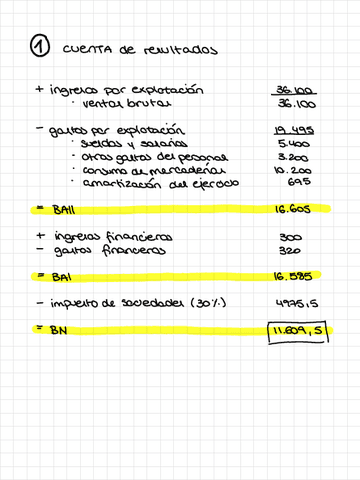 1 cuenta de resultados
+ ingresos por explotación 36.100
· ventas brutas 36.100
- gastos por explotación 19.495
· sueldos y salarios 5.400
· otros gastos del personal 3.200
· consumo de mercaderías 10.200
· amortización del ejercicio 695
= BAII 16.605
+ ingresos financieros 300
- gastos financieros 320
= BAI 16.585
- impuesto de sociedades (30%) 4975,5
= BN 11.609,5